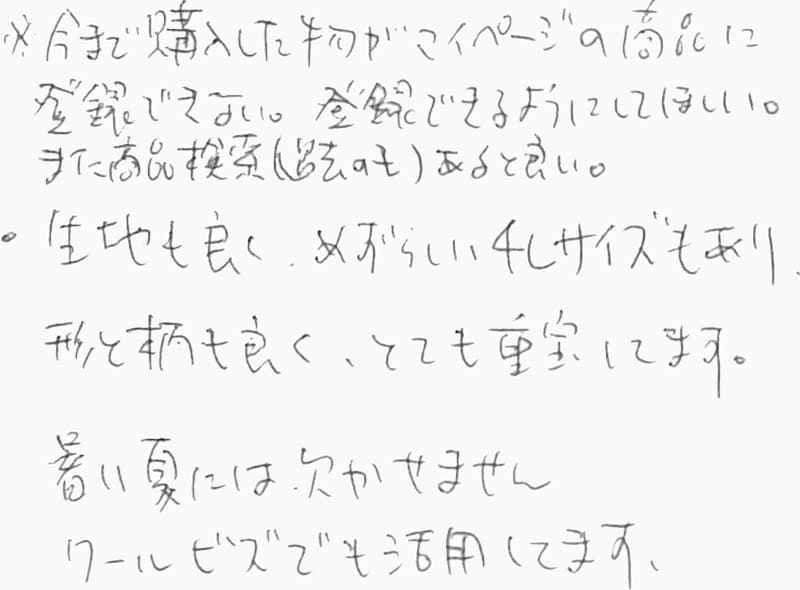 ※今まで購入した物がマイページの商品に
登録できない。登録できるようにしてほしい。
また商品検索(過去のも)あると良い。
・生地も良く、めずらしい4Lサイズもあり、
形と柄も良く、とても重宝してます。
暑い夏には欠かせません
クールビズでも活用してます、